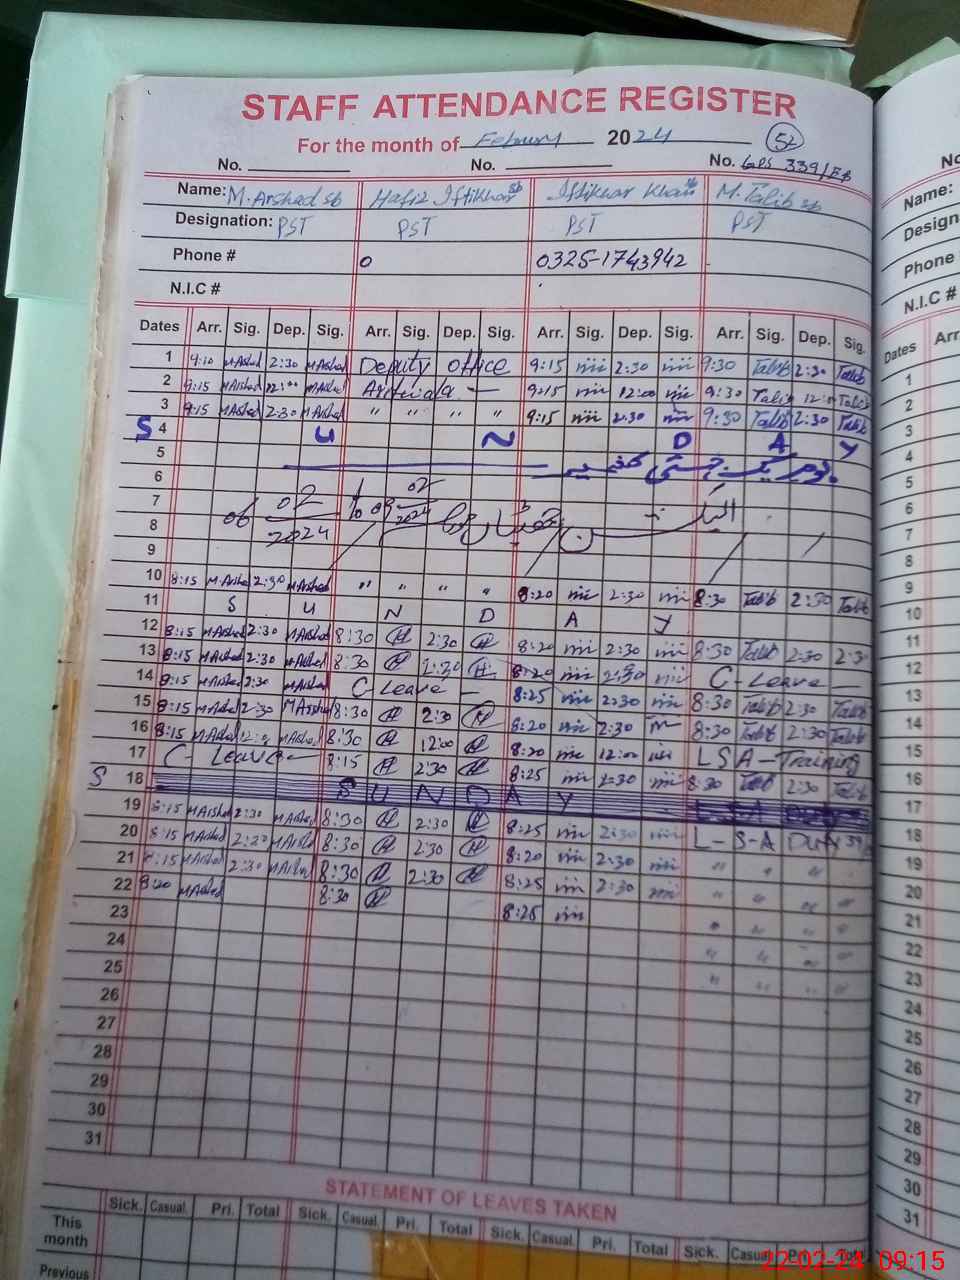 STAFF ATTENDANCE REGISTER
For the month of February 2024 52
No. No. No. GPS 339/EB
Name: M. Arshad sb Hafiz Iftikhar sb Iftikhar Khan sb M. Talib sb
Designation: PST PST PST PST
Phone # 0 0325-1743942
N.I.C #
Dates Arr. Sig. Dep. Sig. Arr. Sig. Dep. Sig. Arr. Sig. Dep. Sig. Arr. Sig. Dep. Sig.
1 9:10 MArshad 2:30 MArshad Deputy office 9:15 2:30 9:30 Talib 2:30 Talib
2 9:15 MArshad 12:00 MArshad 9:15 12:00 9:30 Talib 12:00 Talib
3 9:15 MArshad 2:30 MArshad " " " " 9:15 2:30 9:30 Talib 2:30 Talib
4 S U N D A Y
5
6
7 06 02/2024 to 09 02/2024
8
9
10 8:15 M.Arshad 2:30 MArshad " " " " 8:20 2:30 8:30 Talib 2:30 Talib
11 S U N D A Y
12 8:15 MArshad 2:30 MArshad 8:30 H 2:30 H 8:20 2:30 8:30 Talib 2:30 2:30
13 8:15 MArshad 2:30 MArshad 8:30 H 2:30 H 8:20 2:30 C-Leave
14 8:15 MArshad 2:30 MArshad C-Leave 8:25 2:30 8:30 Talib 2:30 Talib
15 8:15 MArshad 2:30 MArshad 8:30 H 2:30 H 8:20 2:30 8:30 Talib 2:30 Talib
16 8:15 MArshad 12:00 MArshad 8:30 H 12:00 H 8:20 12:00 LSA-Training
17 C-Leave 8:15 H 2:30 H 8:25 2:30 8:30 Talib 2:30 Talib
18 S S U N D A Y
19 8:15 MArshad 2:30 MArshad 8:30 H 2:30 H 8:25 2:30 L-S-A Duty
20 8:15 MArshad 2:30 MArshad 8:30 H 2:30 H 8:20 2:30 " " " "
21 8:15 MArshad 2:30 MArshad 8:30 H 2:30 H 8:25 2:30 " " " "
22 8:20 MArshad 8:30 H 8:25 " " " "
23 " " " "
24 " " " "
25
26
27
28
29
30
31
STATEMENT OF LEAVES TAKEN
Sick. Casual. Pri. Total Sick. Casual. Pri. Total Sick. Casual. Pri. Total Sick. Casual. Pri. Total
This month
Previous
No
Name:
Design
Phone #
N.I.C #
Dates Arr
1
2
3
4
5
6
7
8
9
10
11
12
13
14
15
16
17
18
19
20
21
22
23
24
25
26
27
28
29
30
31
22-02-24 09:15